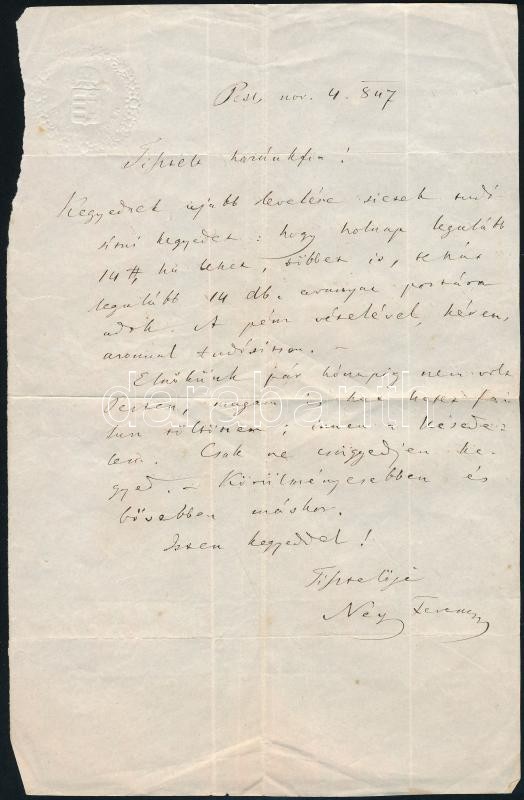 Pest, nov. 4. 847
Tisztelt honfi!
Kegyednek ujabb levelére sietek tudó
sitni kegyedet: hogy holnap legalább
14 #, ha lehet, többet is, tehát
legalább 14 db. aranyat postára
adok. A pénz vételével, kérem,
azonnal tudósítson. –
Elnökünk pár hónapig nem volt
Pesten, magam is hat hetet fa
lun töltöttem; innen a késede-
lem. Csak ne csüggedjen ke-
gyed. – Körülményesebben és
bővebben máskor.
Isten kegyeddel!
Tisztelője
Ney Ferencz
darabanth